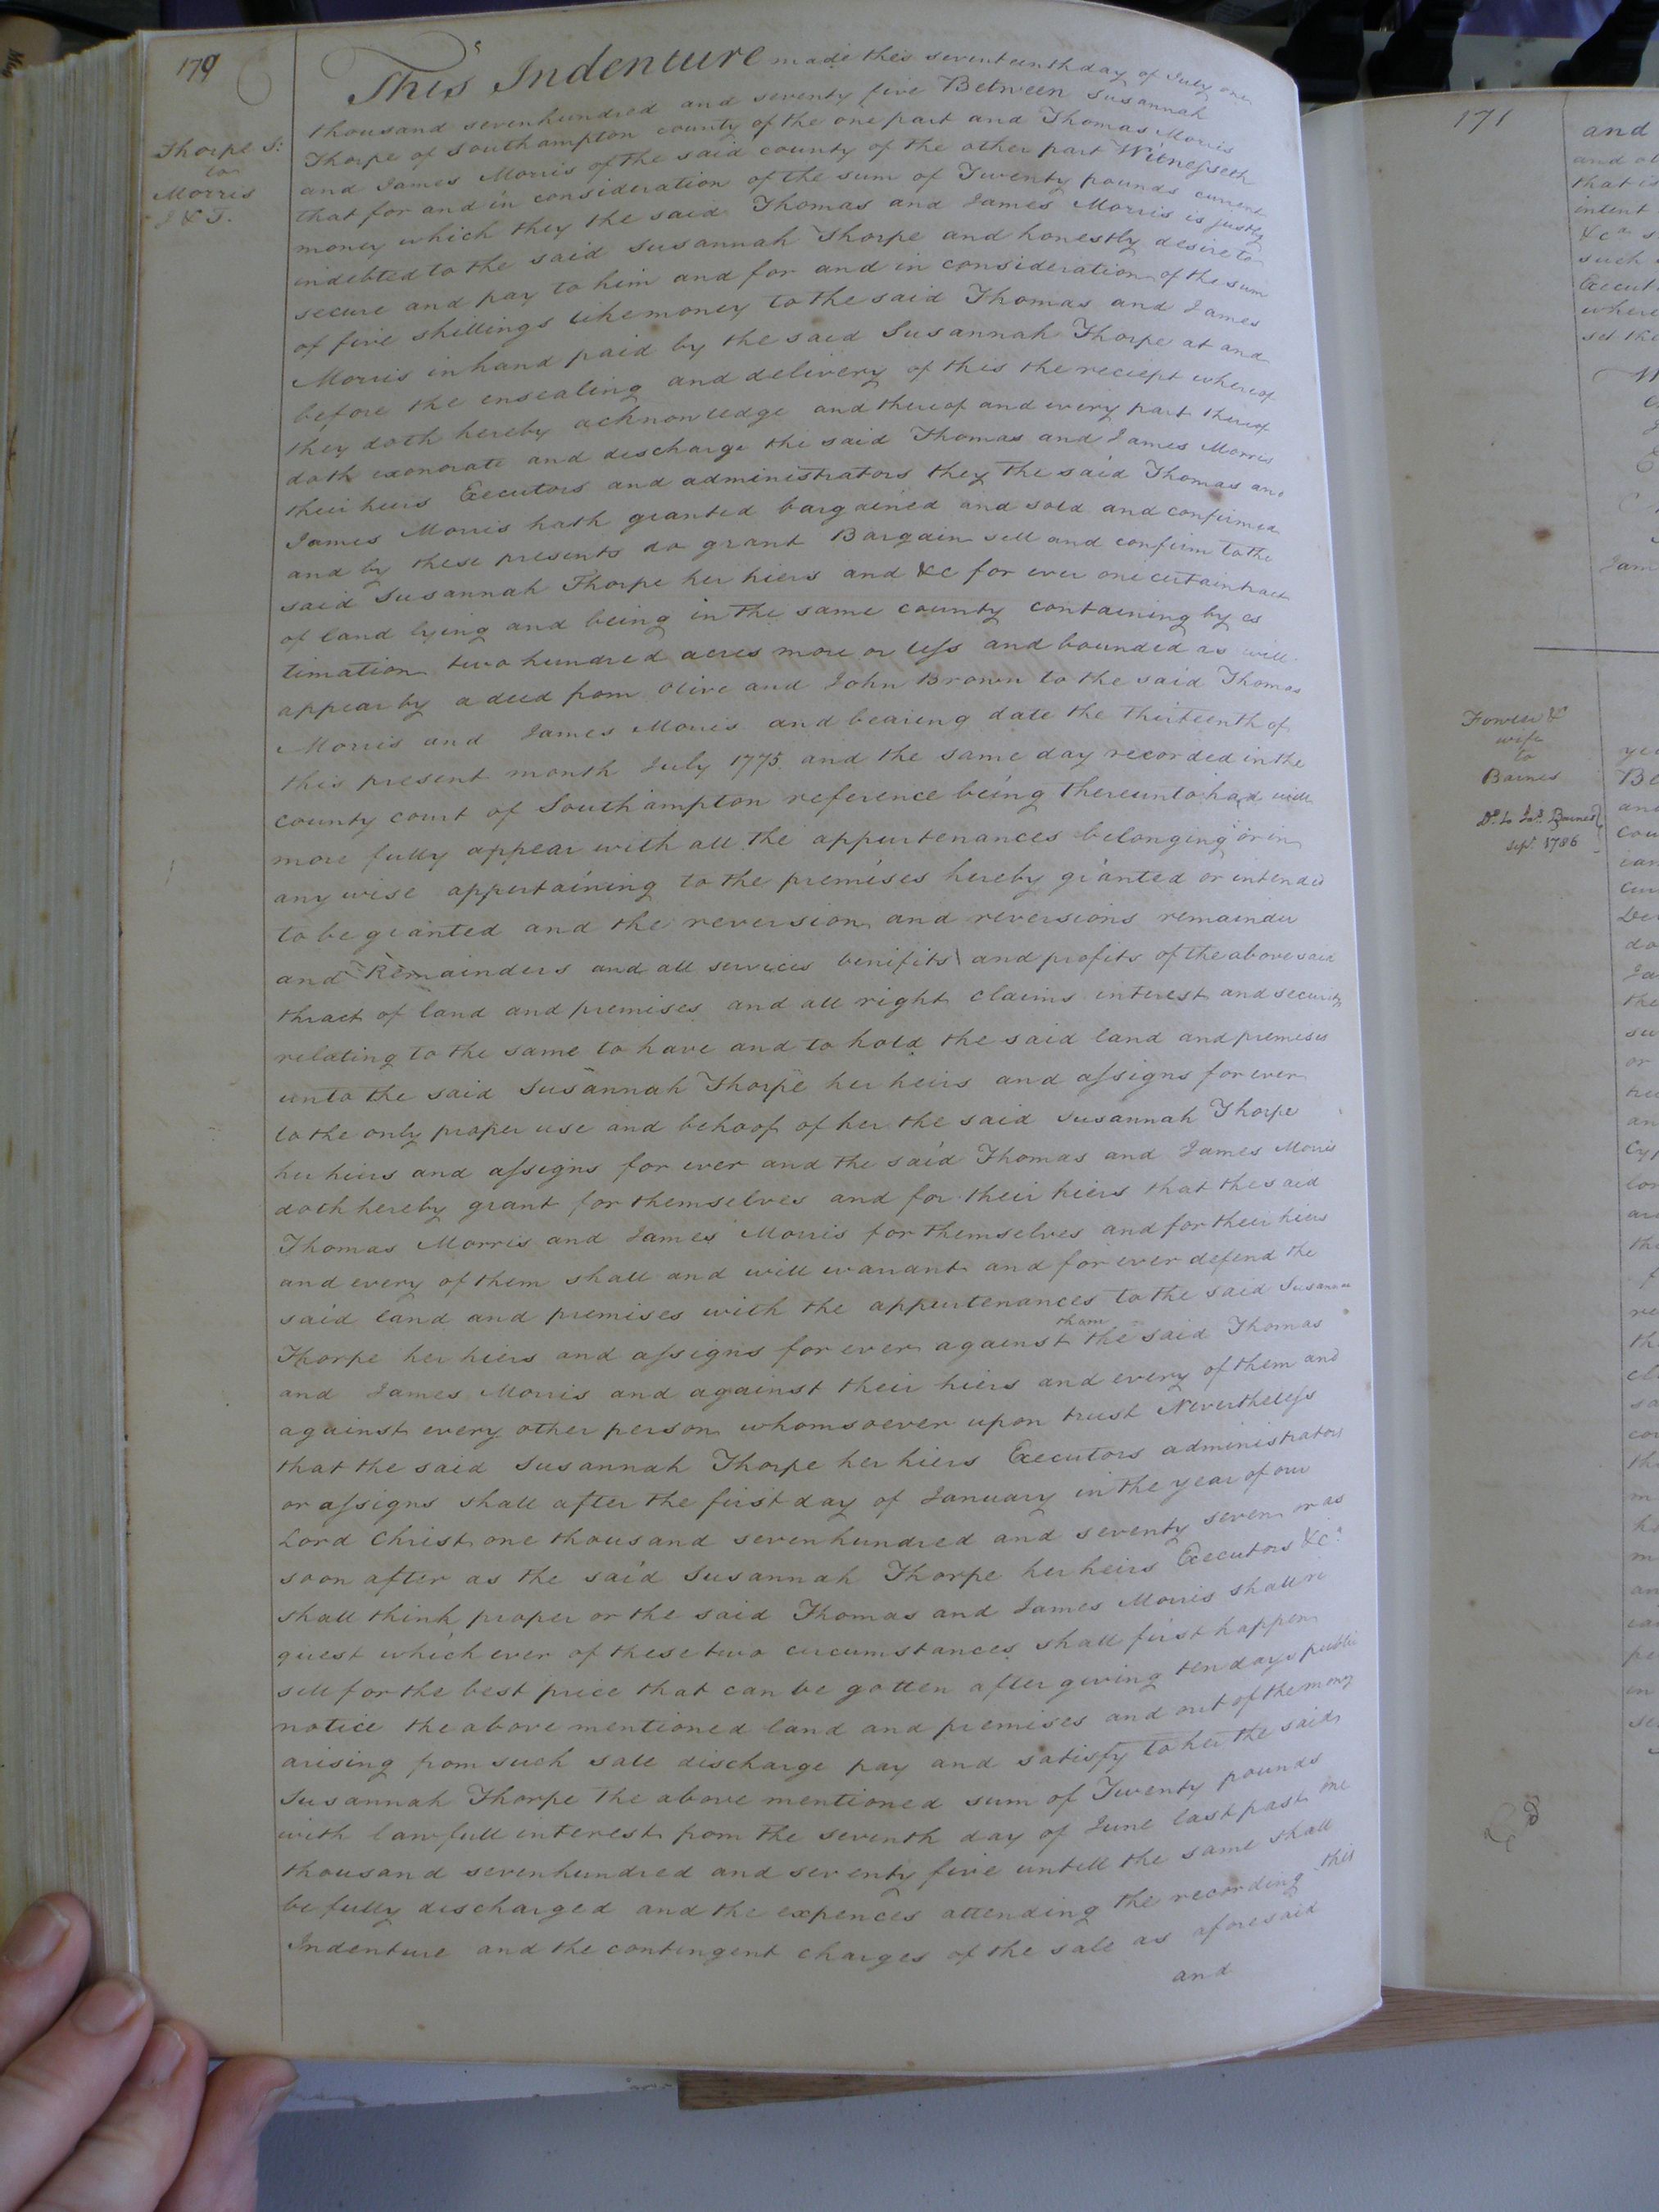 179
Thorpe S:
to
Morris
J & T.
This Indenture made this seventeenth day of July one
thousand sevenhundred and seventy five Between Susannah
Thorpe of Southampton county of the one part and Thomas Morris
and James Morris of the said county of the other part Witnesseth
that for and in consideration of the sum of Twenty pounds current
money which they the said Thomas and James Morris is justly
indebted to the said Susannah Thorpe and honestly desire to
secure and pay to him and for and in consideration of the sum
of five shillings like money to the said Thomas and James
Morris in hand paid by the said Susannah Thorpe at and
before the ensealing and delivery of this the reciept whereof
they doth hereby acknowledge and thereof and every part thereof
doth exonorate and discharge the said Thomas and James Morris
their heirs Executors and administrators they the said Thomas and
James Morris hath granted bargained and sold and confirmed
and by these presents do grant Bargain sell and confirm to the
said Susannah Thorpe her hiers and &c for ever one certain tract
of land lying and being in the same county containing by es
timation two hundred acres more or less and bounded as will
appear by a deed from Olive and John Brown to the said Thomas
Morris and James Morris and bearing date the Thirteenth of
this present month July 1775 and the same day recorded in the
county court of Southampton reference being thereunto had will
more fully appear with all the appurtenances belonging or in
any wise appertaining to the premises hereby granted or intended
to be granted and the reversion and reversions remainder
and Remainders and all services benifits and profits of the above said
thract of land and premises and all right claims interest and security
relating to the same to have and to hold the said land and premises
unto the said Susannah Thorpe her heirs and assigns for ever
to the only proper use and behoof of her the said Susannah Thorpe
her hiers and assigns for ever and the said Thomas and James Morris
doth hereby grant for themselves and for their hiers that the said
Thomas Morris and James Morris for themselves and for their hiers
and every of them shall and will warrant and for ever defend the
said land and premises with the appurtenances to the said Susannah
Thorpe her hiers and assigns for ever against them the said Thomas
and James Morris and against their hiers and every of them and
against every other person whomsoever upon trust Nevertheless
that the said Susannah Thorpe her hiers Executors administrators
or assigns shall after the first day of January in the year of our
Lord Christ one thousand sevenhundred and seventy seven or as
soon after as the said Susannah Thorpe her heirs Executors &c.
shall think proper or the said Thomas and James Morris shall re
quest which ever of these two circumstances shall first happen
sell for the best price that can be gotten after giving ten days public
notice the above mentioned land and premises and out of the mony
arising from such sale discharge pay and satisfy to her the said
Susannah Thorpe the above mentioned sum of Twenty pounds
with lawfull interest from the seventh day of June last past one
thousand sevenhundred and seventy five untill the same shall
be fully discharged and the expences attending the recording this
Indenture and the contingent charges of the sale as aforesaid
and
171
and
that is
intent
such
where
wife
to
Barnes
Do. to Jas. Barnes
Sept. 1786